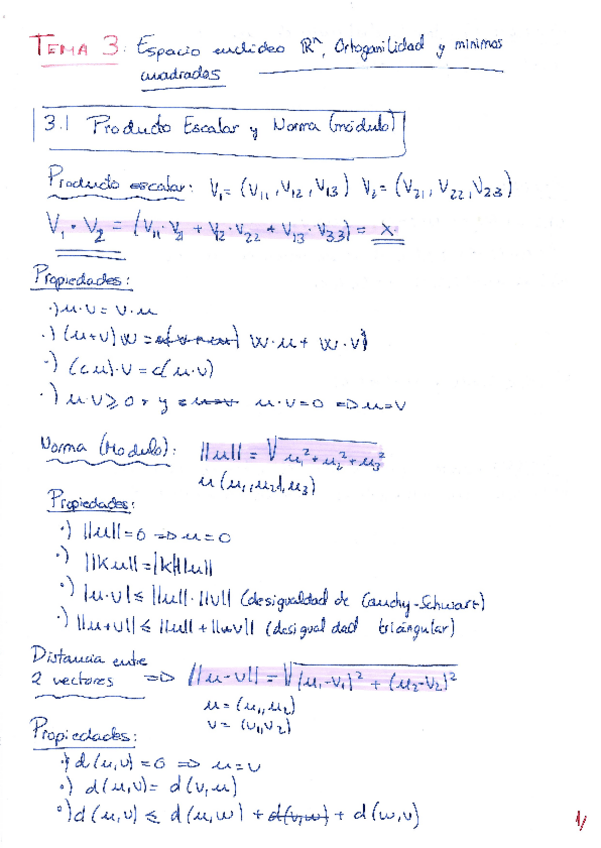 TEMA 3: Espacio euclideo ℝⁿ, Ortoganilidad y minimos
cuadrados
3.1 Producto Escalar y Norma (módulo)
Producto escalar: V₁=(V₁₁,V₁₂,V₁₃) V₂=(V₂₁,V₂₂,V₂₃)
V₁·V₂ = (V₁₁·V₂₁ + V₁₂·V₂₂ + V₁₃·V₃₃) = X
Propiedades:
·) u·v = v·u
·) (u+v)w = w·u + w·v)
·) (cu)·v = c(u·v)
·) u·v ≥ 0 y u·v=0 ⇒ u=v
Norma (Modulo): ||u|| = √u₁²+u₂²+u₃²
u(u₁,u₂,u₃)
Propiedades:
·) ||u||=0 ⇒ u=0
·) ||Ku||=|k|||u||
·) |u·v| ≤ ||u||·||v|| (desigualdad de Cauchy-Schwart)
·) ||u+v|| ≤ ||u|| + ||v|| (desigualdad triangular)
Distancia entre
2 vectores ⇒ ||u-v|| = √(u₁-v₁)² + (u₂-v₂)²
u = (u₁,u₂)
v = (v₁,v₂)
Propiedades:
·) d(u,v)=0 ⇒ u=v
·) d(u,v) = d(v,u)
·) d(u,v) ≤ d(u,w) + d(v,w) + d(w,v)
1/